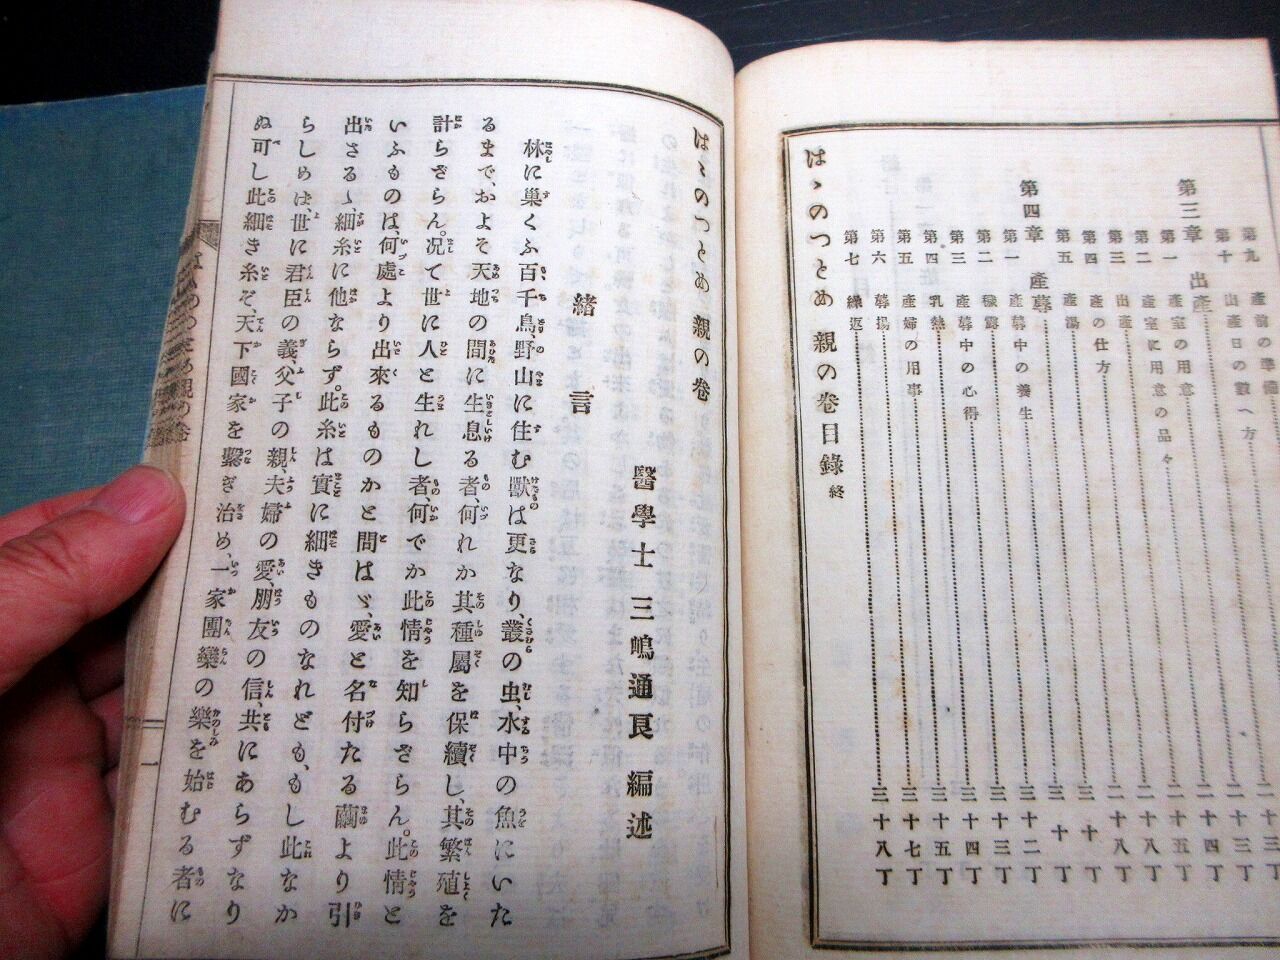 第九 産前の準備
第十 出産日の數へ方 二十三丁
第三章 出産 二十四丁
第一 産室の用意 二十五丁
第二 産室に用意の品々
第三 出産 二十八丁
第四 産の仕方 三十丁
第五 産湯 三十丁
第四章 産蓐 三十二丁
第一 産蓐中の養生 三十三丁
第二 穢露 三十四丁
第三 産蓐中の心得
第四 乳熱 三十五丁
第五 産婦の用事 三十七丁
第六 蓐揚 三十八丁
第七 繰返
はゝのつとめ 親の卷目錄 終
はゝのつとめ 親の卷
醫學士 三嶋通良 編述
緒言
林に巢くふ百千鳥、野山に住む獸は更なり、叢の虫、水中の魚にいた
るまで、およそ天地の間に生息る者、何れか其種屬を保續し、其繁殖を
計らざらん。况て世に人と生れし者、何でか此情を知らざらん。此情と
いふものは、何處より出來るものかと問はゞ、愛と名付たる繭より引
出さるゝ、細糸に他ならず。此糸は實に細きものなれども、もし此なか
らしめは、世に君臣の義、父子の親、夫婦の愛、朋友の信、共にあらずなり
ぬ可し此細き糸ぞ、天下國家を繫ぎ治め、一家團欒の樂を始むる者に
一